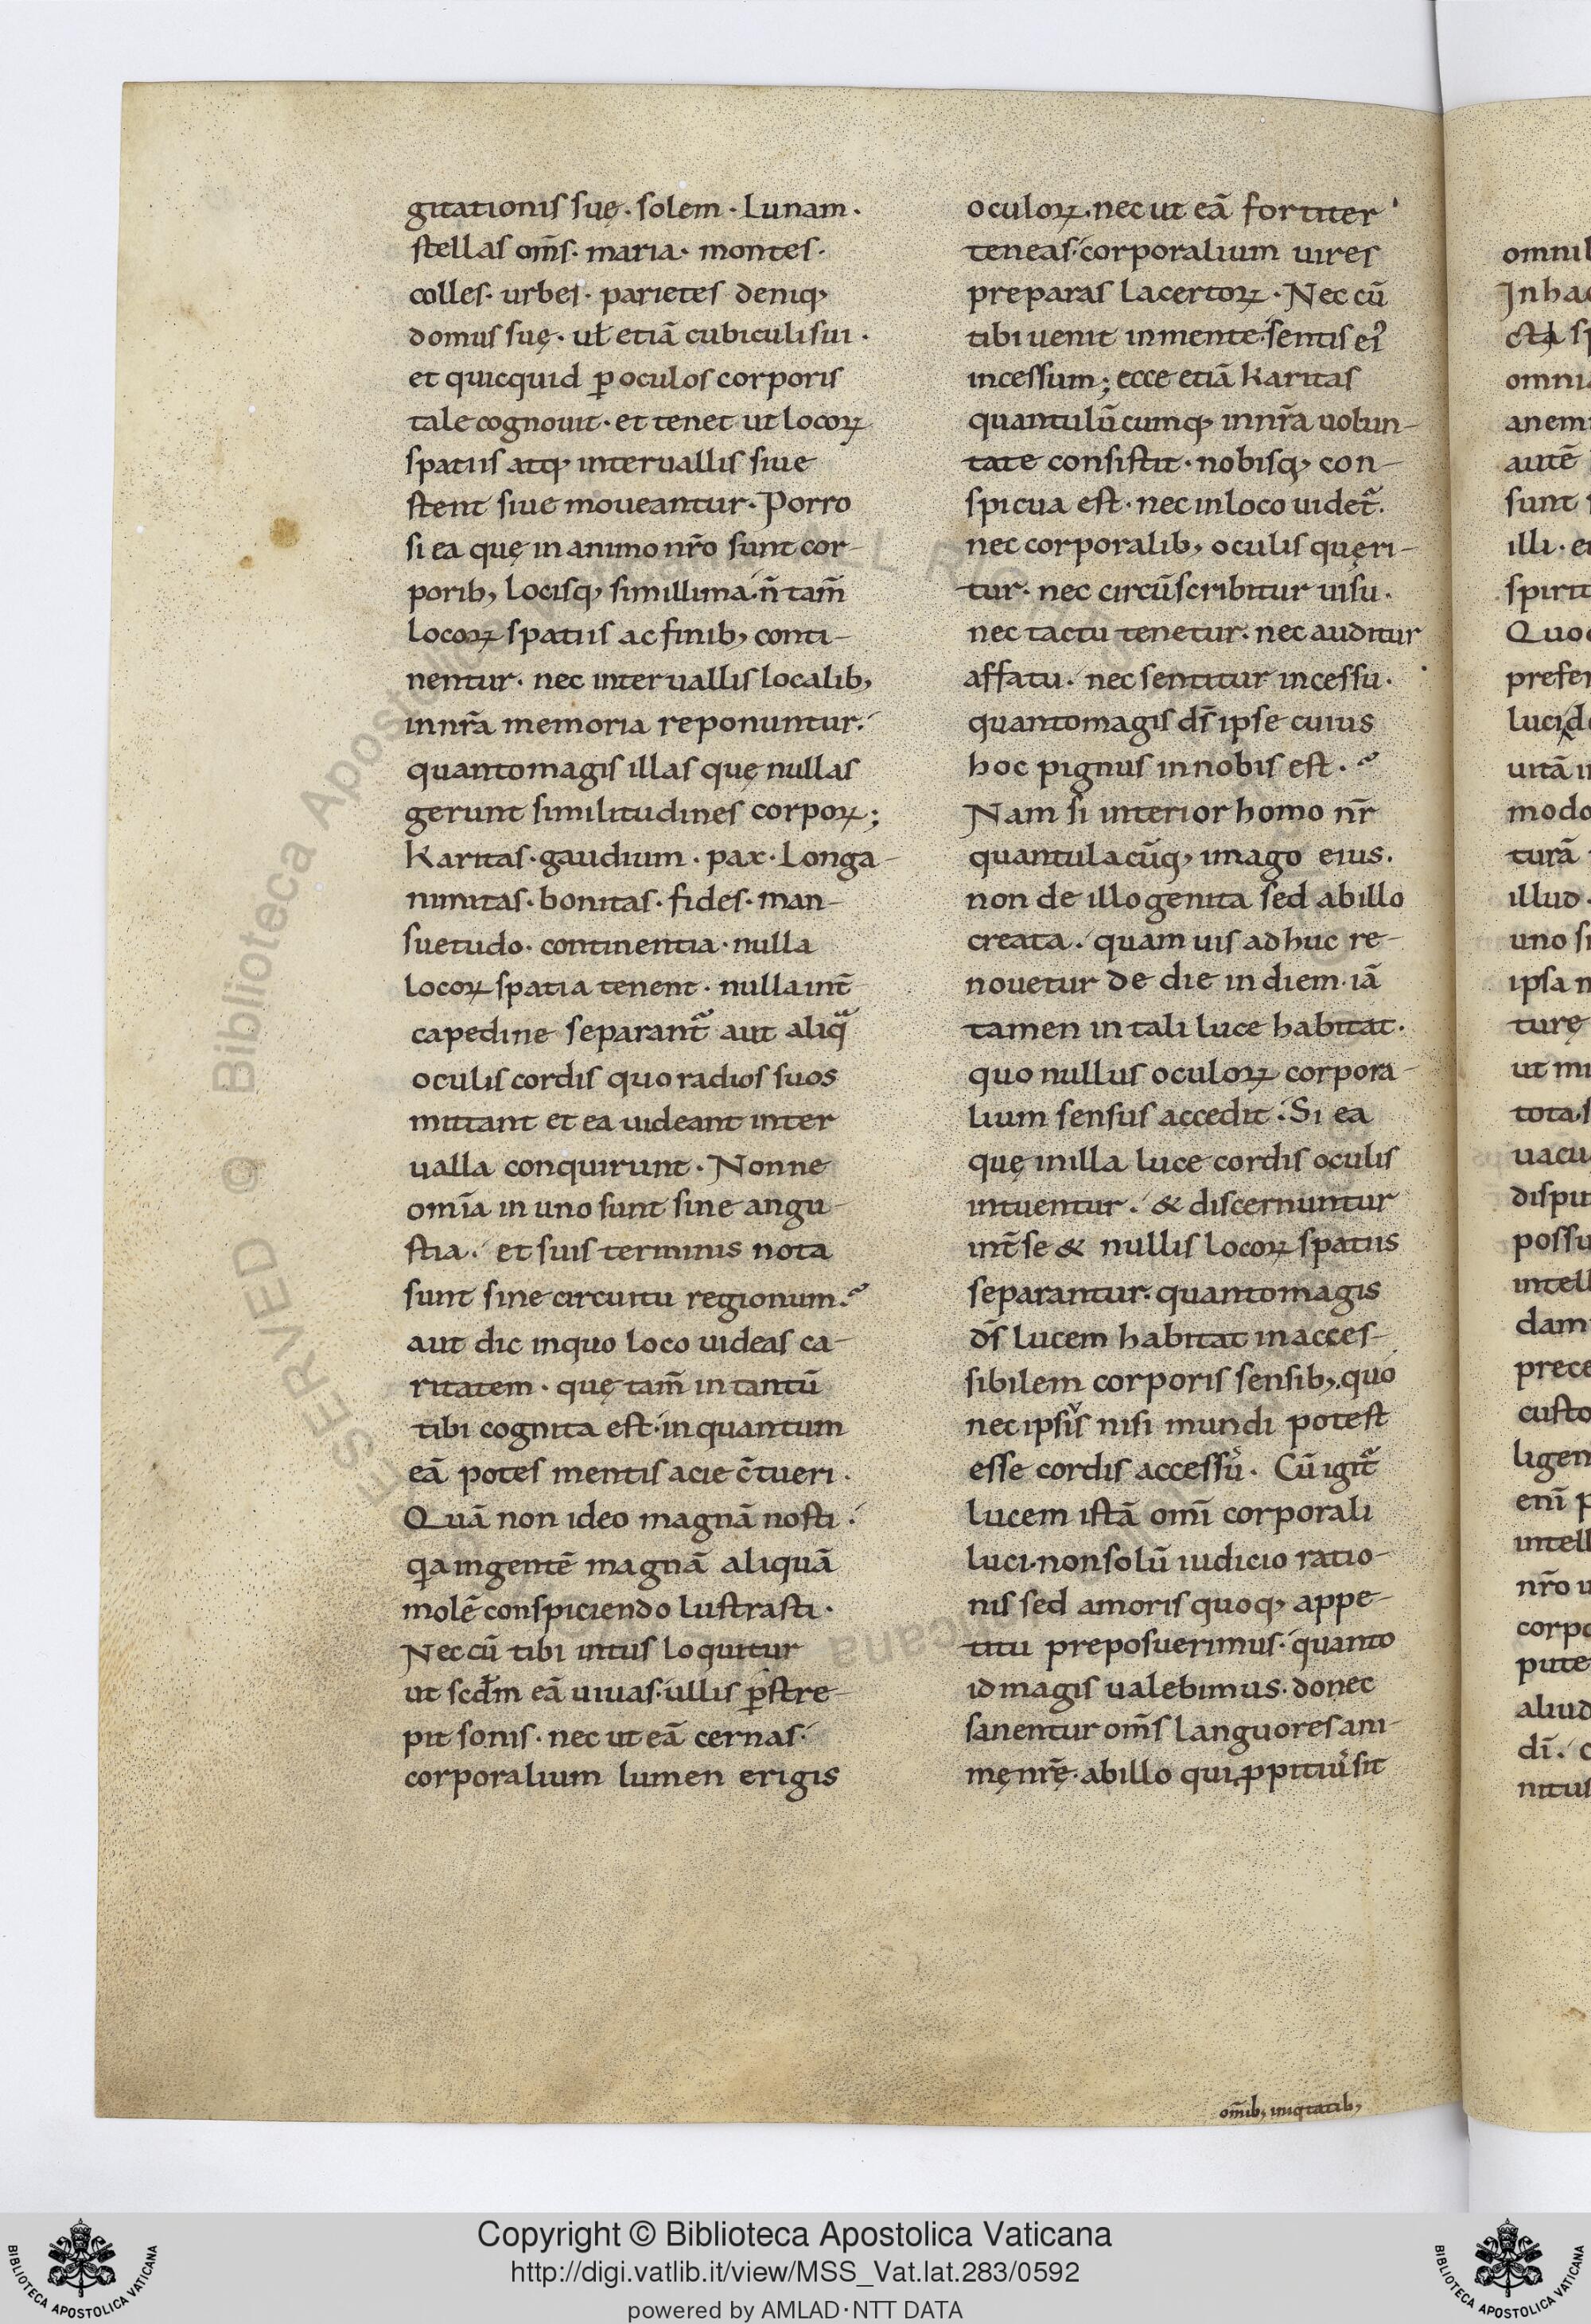 gitationis suę · solem · Lunam ·
stellas om̄s · maria · montes ·
colles · urbes · parietes deniq;
domus suę · uł etiā cubiculi sui ·
et quicquid ꝑ oculos corporis
tale cognouit · et tenet ut locoꝝ
spatiis atq; interuallis siue
stent siue moueantur · Porro
si ea quę in animo nr̄o sunt cor-
porib; Locisq; simillima · n̄ tam̄
locoꝝ spatiis ac finib; conti-
nentur · nec interuallis localib;
in nr̄a memoria reponuntur ·
quantomagis illas quę nullas
gerunt similitudines corpoꝝ;
Karitas · gaudium · pax · Longa-
nimitas · bonitas · fides · man-
suetudo · continentia · nulla
locoꝝ spatia tenent · nulla int̄
capedine separant᷑ aut aliq̄
oculis cordis quo radios suos
mittant et ea uideant inter
ualla conquirunt · Nonne
om̄ia in uno sunt sine angu-
stia · et suis terminis nota
sunt sine circuitu regionum ·
aut dic in quo loco uideas ca-
ritatem · quę tam̄ in tantū
tibi cognita est · in quantum
eā potes mentis acie c̄tueri ·
Quā non ideo magnā nosti ·
qa ingentē magnā aliquā
molē conspiciendo lustrasti ·
Nec cū tibi intus loquitur
ut scd̄m eā uiuas · ullis ꝑstre-
pit sonis · nec ut eā cernas ·
corporalium lumen erigis
oculoꝝ · nec ut eā fortiter
teneas · corporalium uires
preparas lacertoꝝ · Nec cū
tibi uenit in mente · sentis ei᷒
incessum; ecce etiā karitas
quantulū cumq; in nr̄a uolun-
tate consistit · nobisq; con-
spicua est · nec in loco uidet᷑ ·
nec corporalib; oculis quęri-
tur · nec circūscribitur uisu ·
nec tactu tenetur · nec auditur
affatu · nec sentitur incessu ·
quantomagis ds̄ ipse cuius
hoc pignus in nobis est ·
Nam si interior homo nr̄
quantulacūq; imago eius ·
non de illo genita sed ab illo
creata · quam uis adhuc re-
nouetur de die in diem · iā
tamen in tali luce habitat ·
quo nullus oculoꝝ corpora-
lium sensus accedit · Si ea
quę in illa luce cordis oculis
intuentur · & discernuntur
int̄ se & nullis locoꝝ spatiis
separantur · quantomagis
ds̄ lucem habitat in acces-
sibilem corporis sensib; · quo
nec ipsis̾ nisi mundi potest
esse cordis accessu᷒ · Cū igit᷑
lucem istā om̄i corporali
luci · non solū iudicio ratio-
nis sed amoris quoq; appe-
titu preposuerimus · quanto
id magis ualebimus · donec
sanentur om̄s languores ani-
mę nr̄ę · ab illo qui ꝓpitiu᷒ sit
om̄ib; iniqtatib;
Copyright © Biblioteca Apostolica Vaticana
http://digi.vatlib.it/view/MSS_Vat.lat.283/0592
powered by AMLAD·NTT DATA
BIBLIOTECA APOSTOLICA VATICANA
BIBLIOTECA APOSTOLICA VATICANA